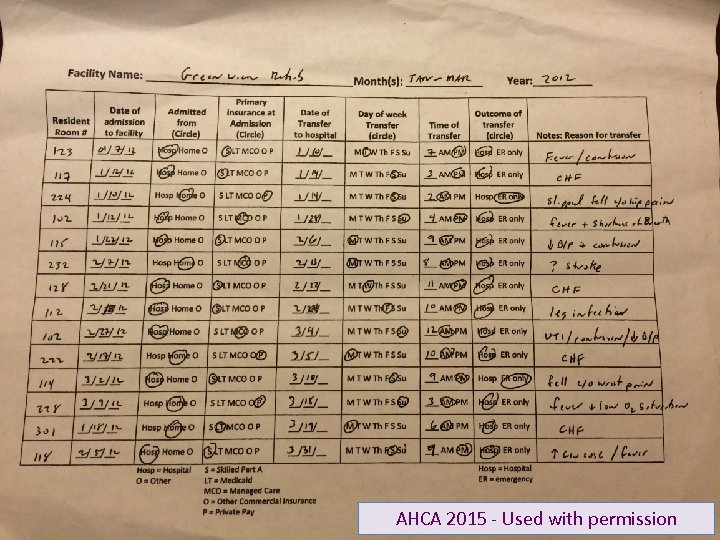 Facility Name: Green View Rehab Month(s): JAN - MAR Year: 2012
Resident Room # Date of admission to facility Admitted from (Circle) Primary insurance at Admission (Circle) Date of Transfer to hospital Day of week Transfer (circle) Time of Transfer Outcome of transfer (circle) Notes: Reason for transfer
123 01/7/12 Hosp Home O S LT MCO O P 1/10/ M T W Th F S Su 7 AM PM Hosp ER only Fever/confusion
117 1/12/12 Hosp Home O S LT MCO O P 1/14/ M T W Th F S Su 3 AM PM Hosp ER only CHF
224 1/10/12 Hosp Home O S LT MCO O P 1/14/ M T W Th F S Su 2 AM PM Hosp ER only fell y/o hip pain
102 1/12/12 Hosp Home O S LT MCO O P 1/28/ M T W Th F S Su 4 AM PM Hosp ER only fever + Shortness of Breath
115 1/23/12 Hosp Home O S LT MCO O P 2/6/ M T W Th F S Su 9 AM PM Hosp ER only ↓ B/P + confusion
232 2/7/12 Hosp Home O S LT MCO O P 2/13/ M T W Th F S Su 8 AM PM Hosp ER only ? Stroke
128 2/21/12 Hosp Home O S LT MCO O P 2/22/ M T W Th F S Su 11 AM PM Hosp ER only CHF
112 2/12 Hosp Home O S LT MCO O P 2/24/ M T W Th F S Su 10 AM PM Hosp ER only leg infection
102 2/27/12 Hosp Home O S LT MCO O P 3/4/ M T W Th F S Su 12 AM PM Hosp ER only UTI/confusion/↓ B/p
222 2/13/12 Hosp Home O S LT MCO O P 3/5/ M T W Th F S Su 10 AM PM Hosp ER only CHF
114 3/2/12 Hosp Home O S LT MCO O P 3/18/ M T W Th F S Su 9 AM PM Hosp ER only fell y/o wrist pain
228 3/9/12 Hosp Home O S LT MCO O P 3/18/ M T W Th F S Su 3 AM PM Hosp ER only fever + low O2 saturation
301 1/18/12 Hosp Home O S LT MCO O P 3/19/ M T W Th F S Su 6 AM PM Hosp ER only CHF
118 Hosp Home O S LT MCO O P 3/31/ M T W Th F S Su 9 AM PM Hosp ER only ↑ / fever
Hosp = Hospital S = Skilled Part A Hosp = Hospital
O = Other LT = Medicaid ER = emergency
MCO = Managed Care
O = Other Commercial Insurance
P = Private Pay
AHCA 2015 - Used with permission